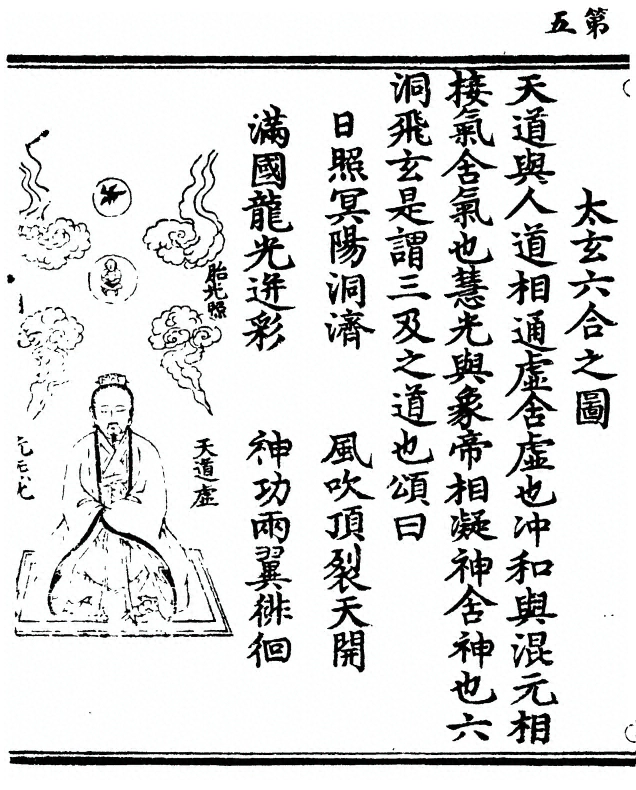 第五
太玄六合之圖
天道與人道相通虛舍虛也冲和與混元相
接氣舍氣也慧光與象帝相凝神舍神也六
洞飛玄是謂三及之道也頌曰
日照冥陽洞濟　風吹頂裂天開
滿國龍光迸彩　神功兩翼徘徊
胎光照
天道虛